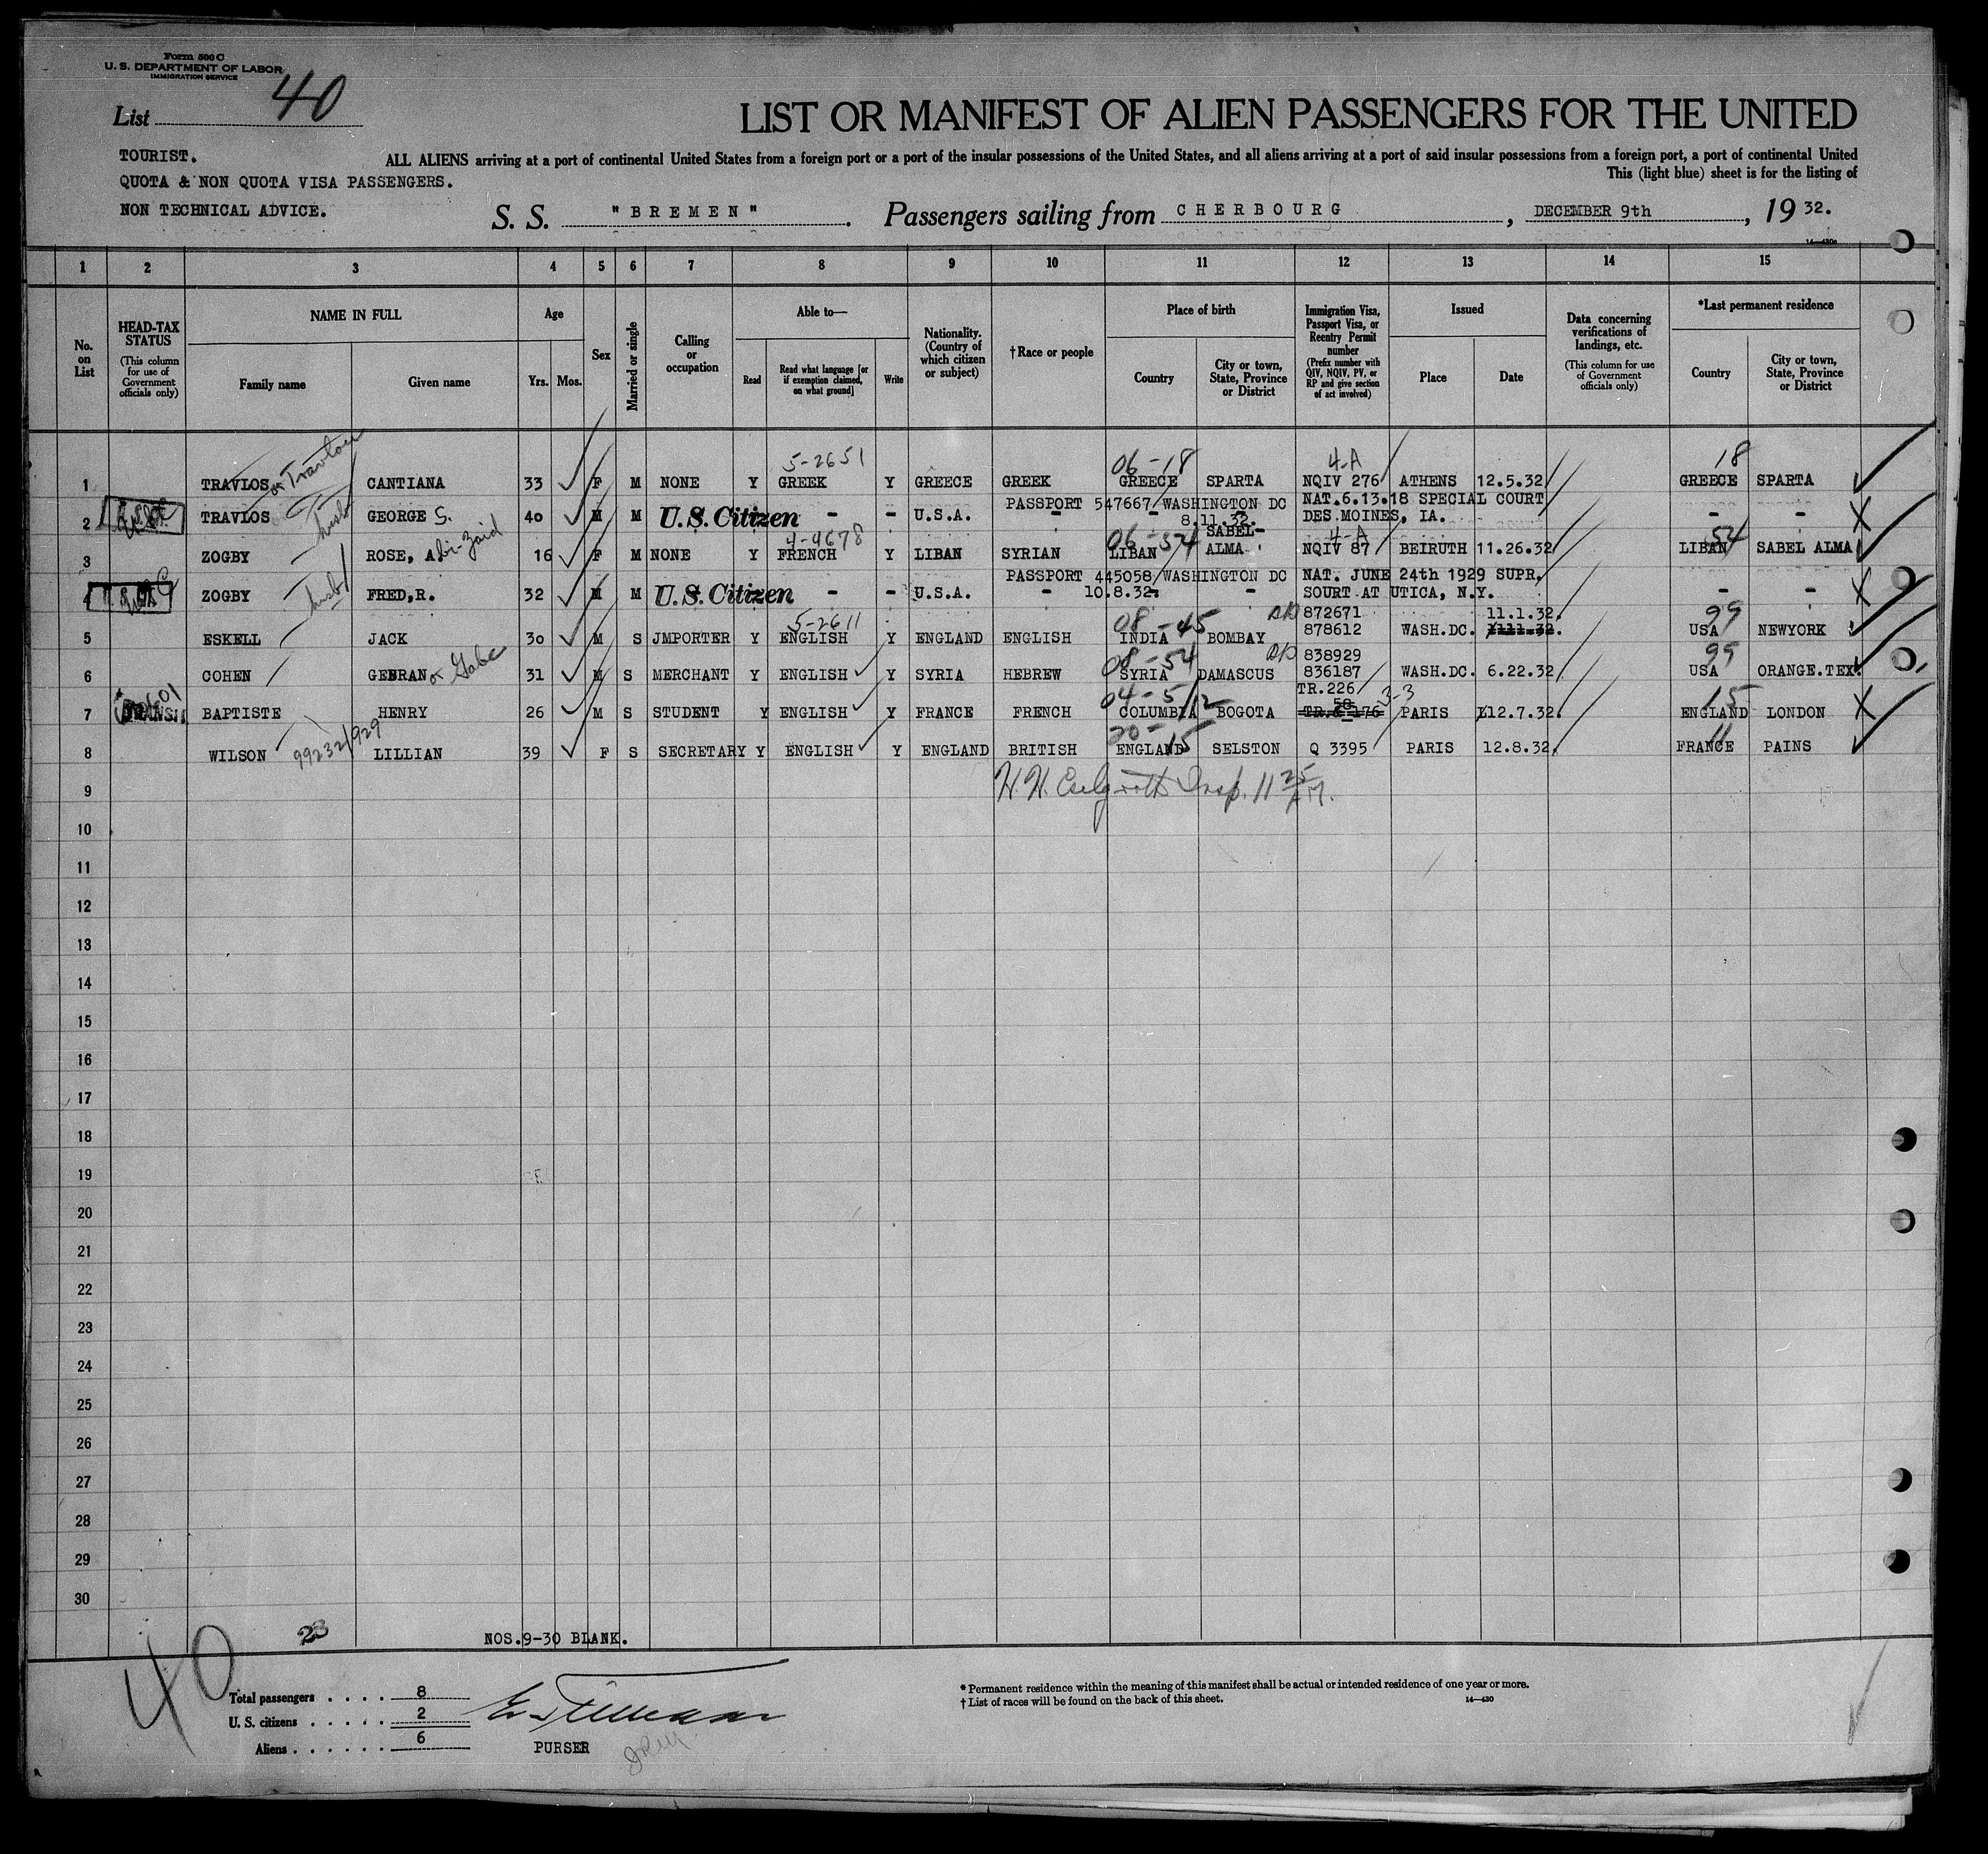 Form 500 C
U. S. DEPARTMENT OF LABOR
IMMIGRATION SERVICE
List 40
LIST OR MANIFEST OF ALIEN PASSENGERS FOR THE UNITED
TOURIST.
QUOTA & NON QUOTA VISA PASSENGERS.
NON TECHNICAL ADVICE.
ALL ALIENS arriving at a port of continental United States from a foreign port or a port of the insular possessions of the United States, and all aliens arriving at a port of said insular possessions from a foreign port, a port of continental United
This (light blue) sheet is for the listing of
S. S. "BREMEN". Passengers sailing from CHERBOURG, DECEMBER 9th, 1932.
1 2 3 4 5 6 7 8 9 10 11 12 13 14 15
No. on List
HEAD-TAX STATUS (This column for use of Government officials only)
NAME IN FULL Family name Given name
Age Yrs. Mos.
Sex
Married or single
Calling or occupation
Able to— Read Read what language [or if exemption claimed, on what ground] Write
Nationality. (Country of which citizen or subject)
†Race or people
Place of birth Country City or town, State, Province or District
Immigration Visa, Passport Visa, or Reentry Permit number (Prefix number with QIV, NQIV, PV, or RP and give section of act involved)
Issued Place Date
Data concerning verifications of landings, etc. (This column for use of Government officials only)
*Last permanent residence Country City or town, State, Province or District
or Travlou 5-2651 06-18 4-A 18
1 TRAVLOS CANTIANA 33 F M NONE Y GREEK Y GREECE GREEK GREECE SPARTA NQIV 276 ATHENS 12.5.32 GREECE SPARTA
PASSPORT 547667/WASHINGTON DC NAT.6.13.18 SPECIAL COURT
2 TRAVLOS husb GEORGE S. 40 M M U.S. Citizen - - U.S.A. 8.11.32. DES MOINES, IA. - -
bi-Zaid 4-4678 06-54 SABEL- 4-A 54
3 ZOGBY ROSE, A. 16 F M NONE Y FRENCH Y LIBAN SYRIAN LIBAN ALMA NQIV 87 BEIRUTH 11.26.32 LIBAN SABEL ALMA
PASSPORT 445058/WASHINGTON DC NAT. JUNE 24th 1929 SUPR.
4 ZOGBY husb FRED,R. 32 M M U.S. Citizen - - U.S.A. - 10.8.32. - SOURT AT UTICA, N.Y. - -
5-2611 08-45 872671 11.1.32. 99
5 ESKELL JACK 30 M S JMPORTER Y ENGLISH Y ENGLAND ENGLISH INDIA BOMBAY 878612 WASH.DC. USA NEWYORK
08-54 838929 99
6 COHEN GEBRAN or Gabe 31 M S MERCHANT Y ENGLISH Y SYRIA HEBREW SYRIA DAMASCUS 836187 WASH.DC. 6.22.32 USA ORANGE.TEX.
04-5/2 TR.226 3-3 15
7 TRANSIT BAPTISTE HENRY 26 M S STUDENT Y ENGLISH Y FRANCE FRENCH COLUMBIA BOGOTA 58 TR.C 176 PARIS 12.7.32. ENGLAND LONDON
99232/929 20-15 11
8 WILSON LILLIAN 39 F S SECRETARY Y ENGLISH Y ENGLAND BRITISH ENGLAND SELSTON Q 3395 PARIS 12.8.32. FRANCE PAINS
9 H. H. Insp. 11 25 AM.
10
11
12
13
14
15
16
17
18
19
20
21
22
23
24
25
26
27
28
29
30
23 NOS.9-30 BLANK.
40
Total passengers . . . . 8
U. S. citizens . . . . . 2
Aliens . . . . . . 6
PURSER
* Permanent residence within the meaning of this manifest shall be actual or intended residence of one year or more.
† List of races will be found on the back of this sheet. 14—430